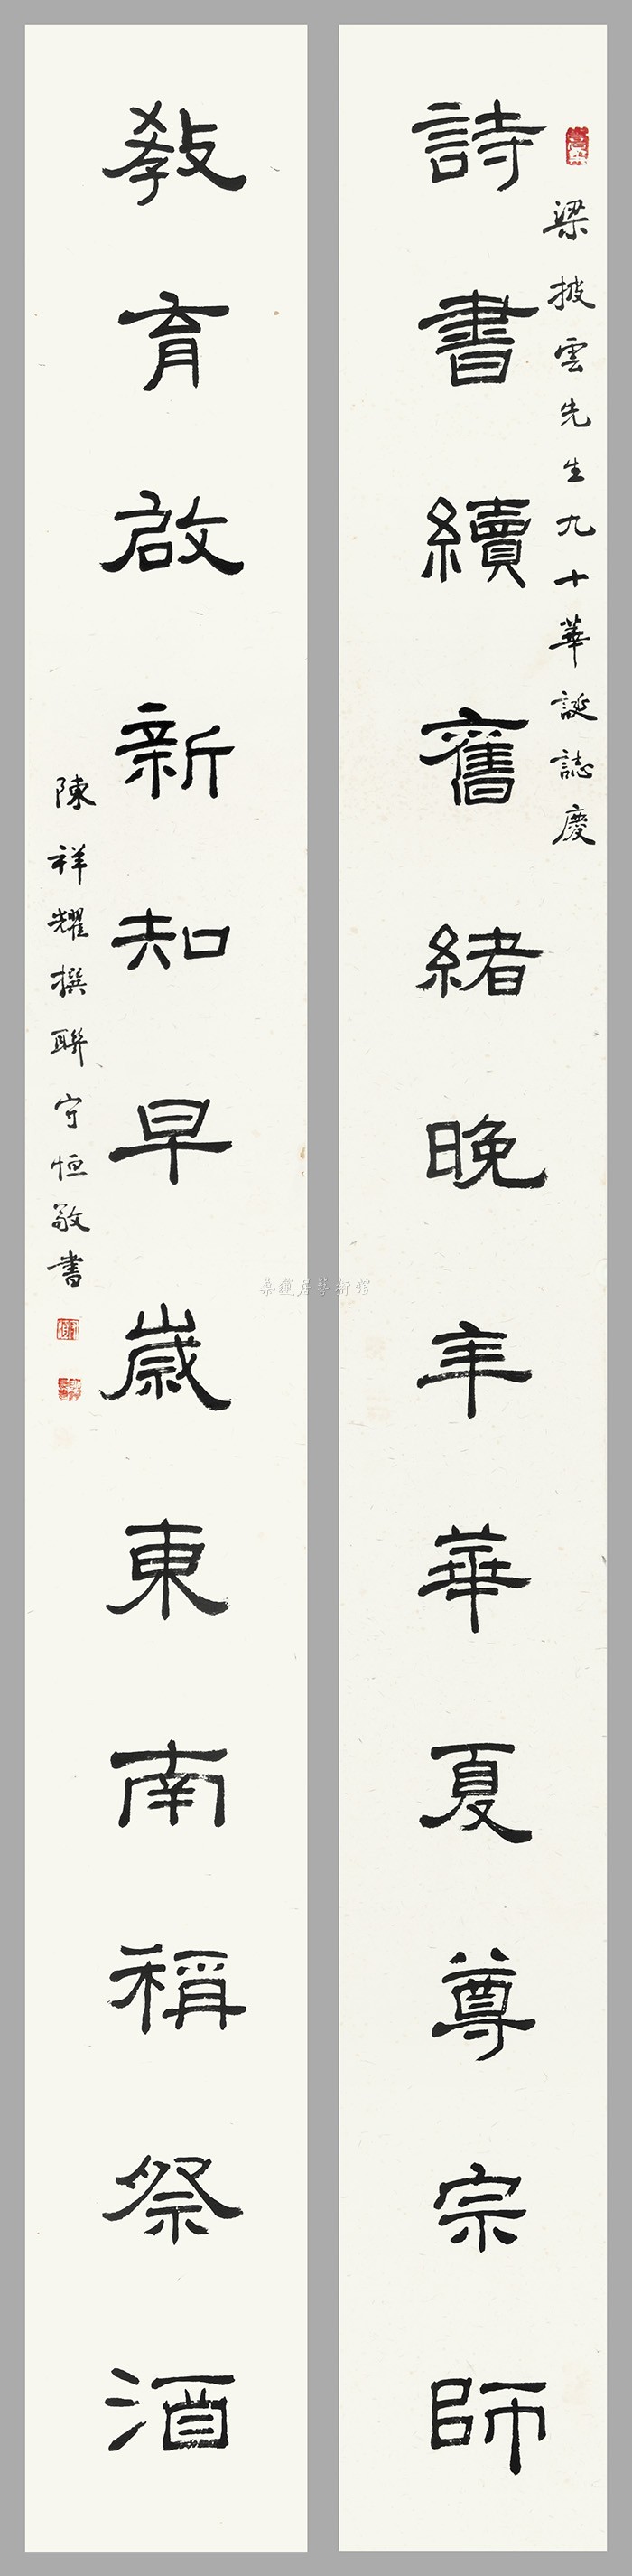 梁披雲先生九十華誕誌慶
詩書續舊緒晚年華夏尊宗師
教育啟新知早歲東南稱祭酒
陳祥耀撰聯守恒敬書